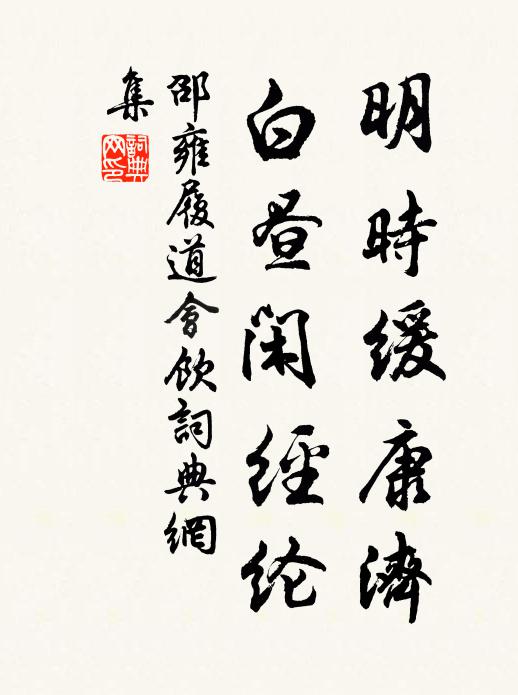 明時緩康濟
白昼閑經纶
邵雍履道會飲詞典網
集
詞典
网印